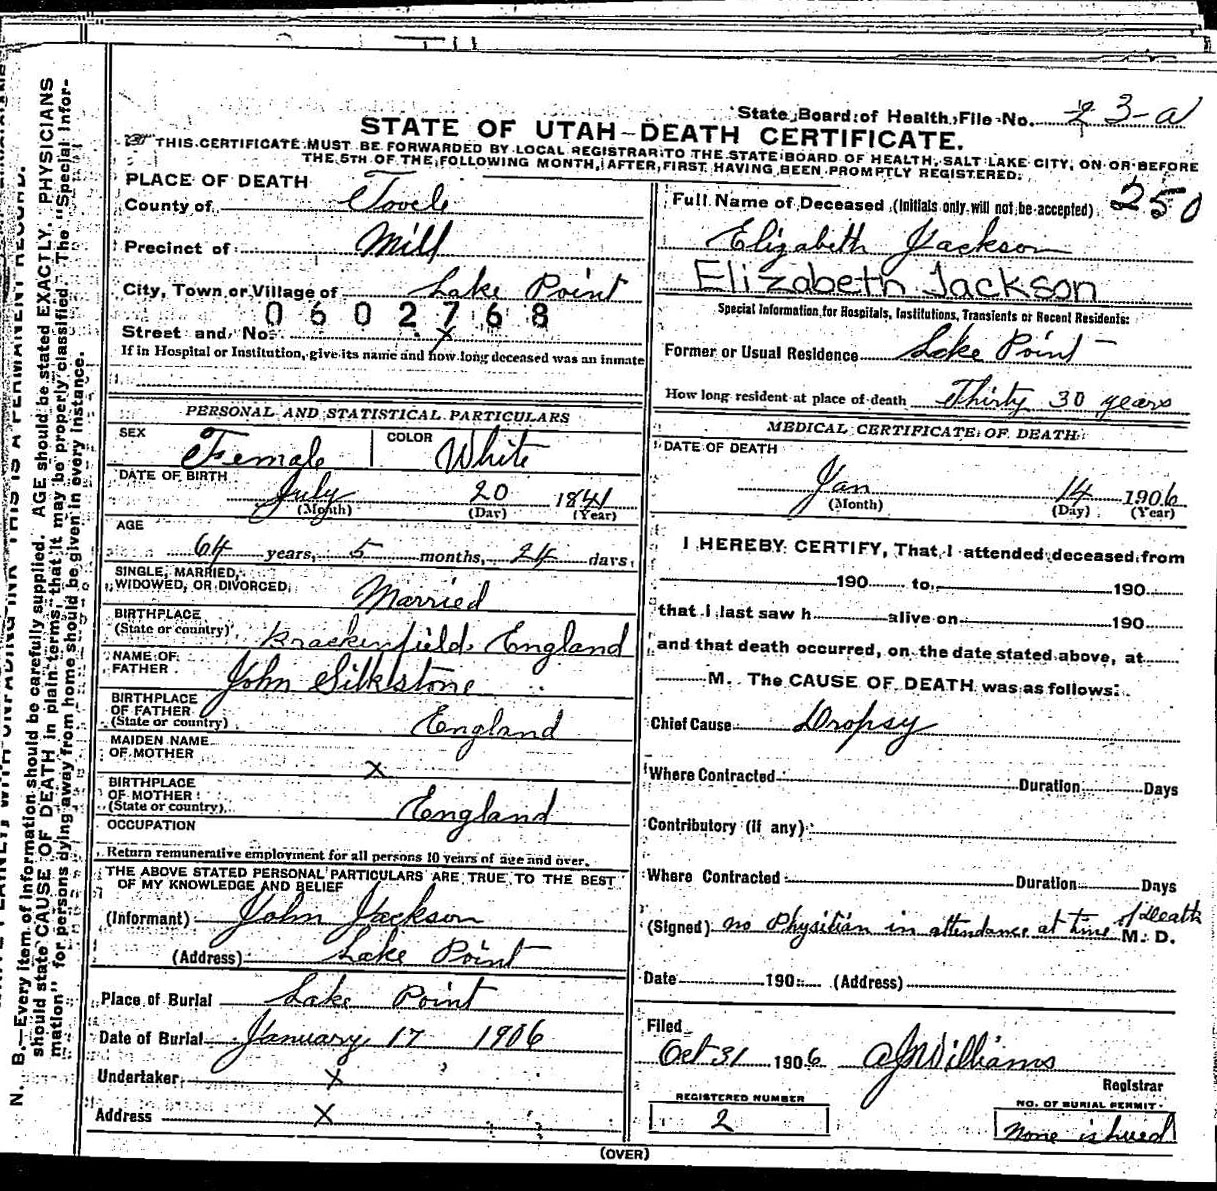 State Board of Health, File No. 23-a
STATE OF UTAH—DEATH CERTIFICATE.
THIS CERTIFICATE MUST BE FORWARDED BY LOCAL REGISTRAR TO THE STATE BOARD OF HEALTH, SALT LAKE CITY, ON OR BEFORE
THE 5TH OF THE FOLLOWING MONTH, AFTER FIRST HAVING BEEN PROMPTLY REGISTERED.
N. B.—Every item of information should be carefully supplied. AGE should be stated EXACTLY. PHYSICIANS
should state CAUSE OF DEATH in plain terms, that it may be properly classified. The "Special Infor-
mation" for persons dying away from home should be given in every instance.
THIS IS A PERMANENT RECORD.
PLACE OF DEATH
County of Tooele
Precinct of Mill
City, Town or Village of Lake Point
0602768
Street and No. x
If in Hospital or Institution, give its name and how long deceased was an inmate
PERSONAL AND STATISTICAL PARTICULARS
SEX Female COLOR White
DATE OF BIRTH
July 20 1841
(Month) (Day) (Year)
AGE
64 years, 5 months, 24 days.
SINGLE, MARRIED,
WIDOWED, OR DIVORCED Married
BIRTHPLACE
(State or country) Brackenfield, England
NAME OF
FATHER John Silkstone
BIRTHPLACE
OF FATHER
(State or country) England
MAIDEN NAME
OF MOTHER x
BIRTHPLACE
OF MOTHER
(State or country) England
OCCUPATION
Return remunerative employment for all persons 10 years of age and over.
THE ABOVE STATED PERSONAL PARTICULARS ARE TRUE TO THE BEST
OF MY KNOWLEDGE AND BELIEF
(Informant) John Jackson
(Address) Lake Point
Place of Burial Lake Point
Date of Burial January 17 1906
Undertaker x
Address x
250
Full Name of Deceased (Initials only will not be accepted)
Elizabeth Jackson
Elizabeth Jackson
Special Information for Hospitals, Institutions, Transients or Recent Residents:
Former or Usual Residence Lake Point
How long resident at place of death Thirty 30 years
MEDICAL CERTIFICATE OF DEATH
DATE OF DEATH
Jan 14 1906
(Month) (Day) (Year)
I HEREBY CERTIFY, That I attended deceased from
190 to 190
that I last saw h alive on 190
and that death occurred, on the date stated above, at
M. The CAUSE OF DEATH was as follows:
Chief Cause Dropsy
Where Contracted Duration Days
Contributory (if any)
Where Contracted Duration Days
(Signed) no Physitian in attendance at time of Death M. D.
Date 190 (Address)
Filed
Oct 31 1906 Williams
Registrar
REGISTERED NUMBER
2
NO. OF BURIAL PERMIT
None ishued
(OVER)